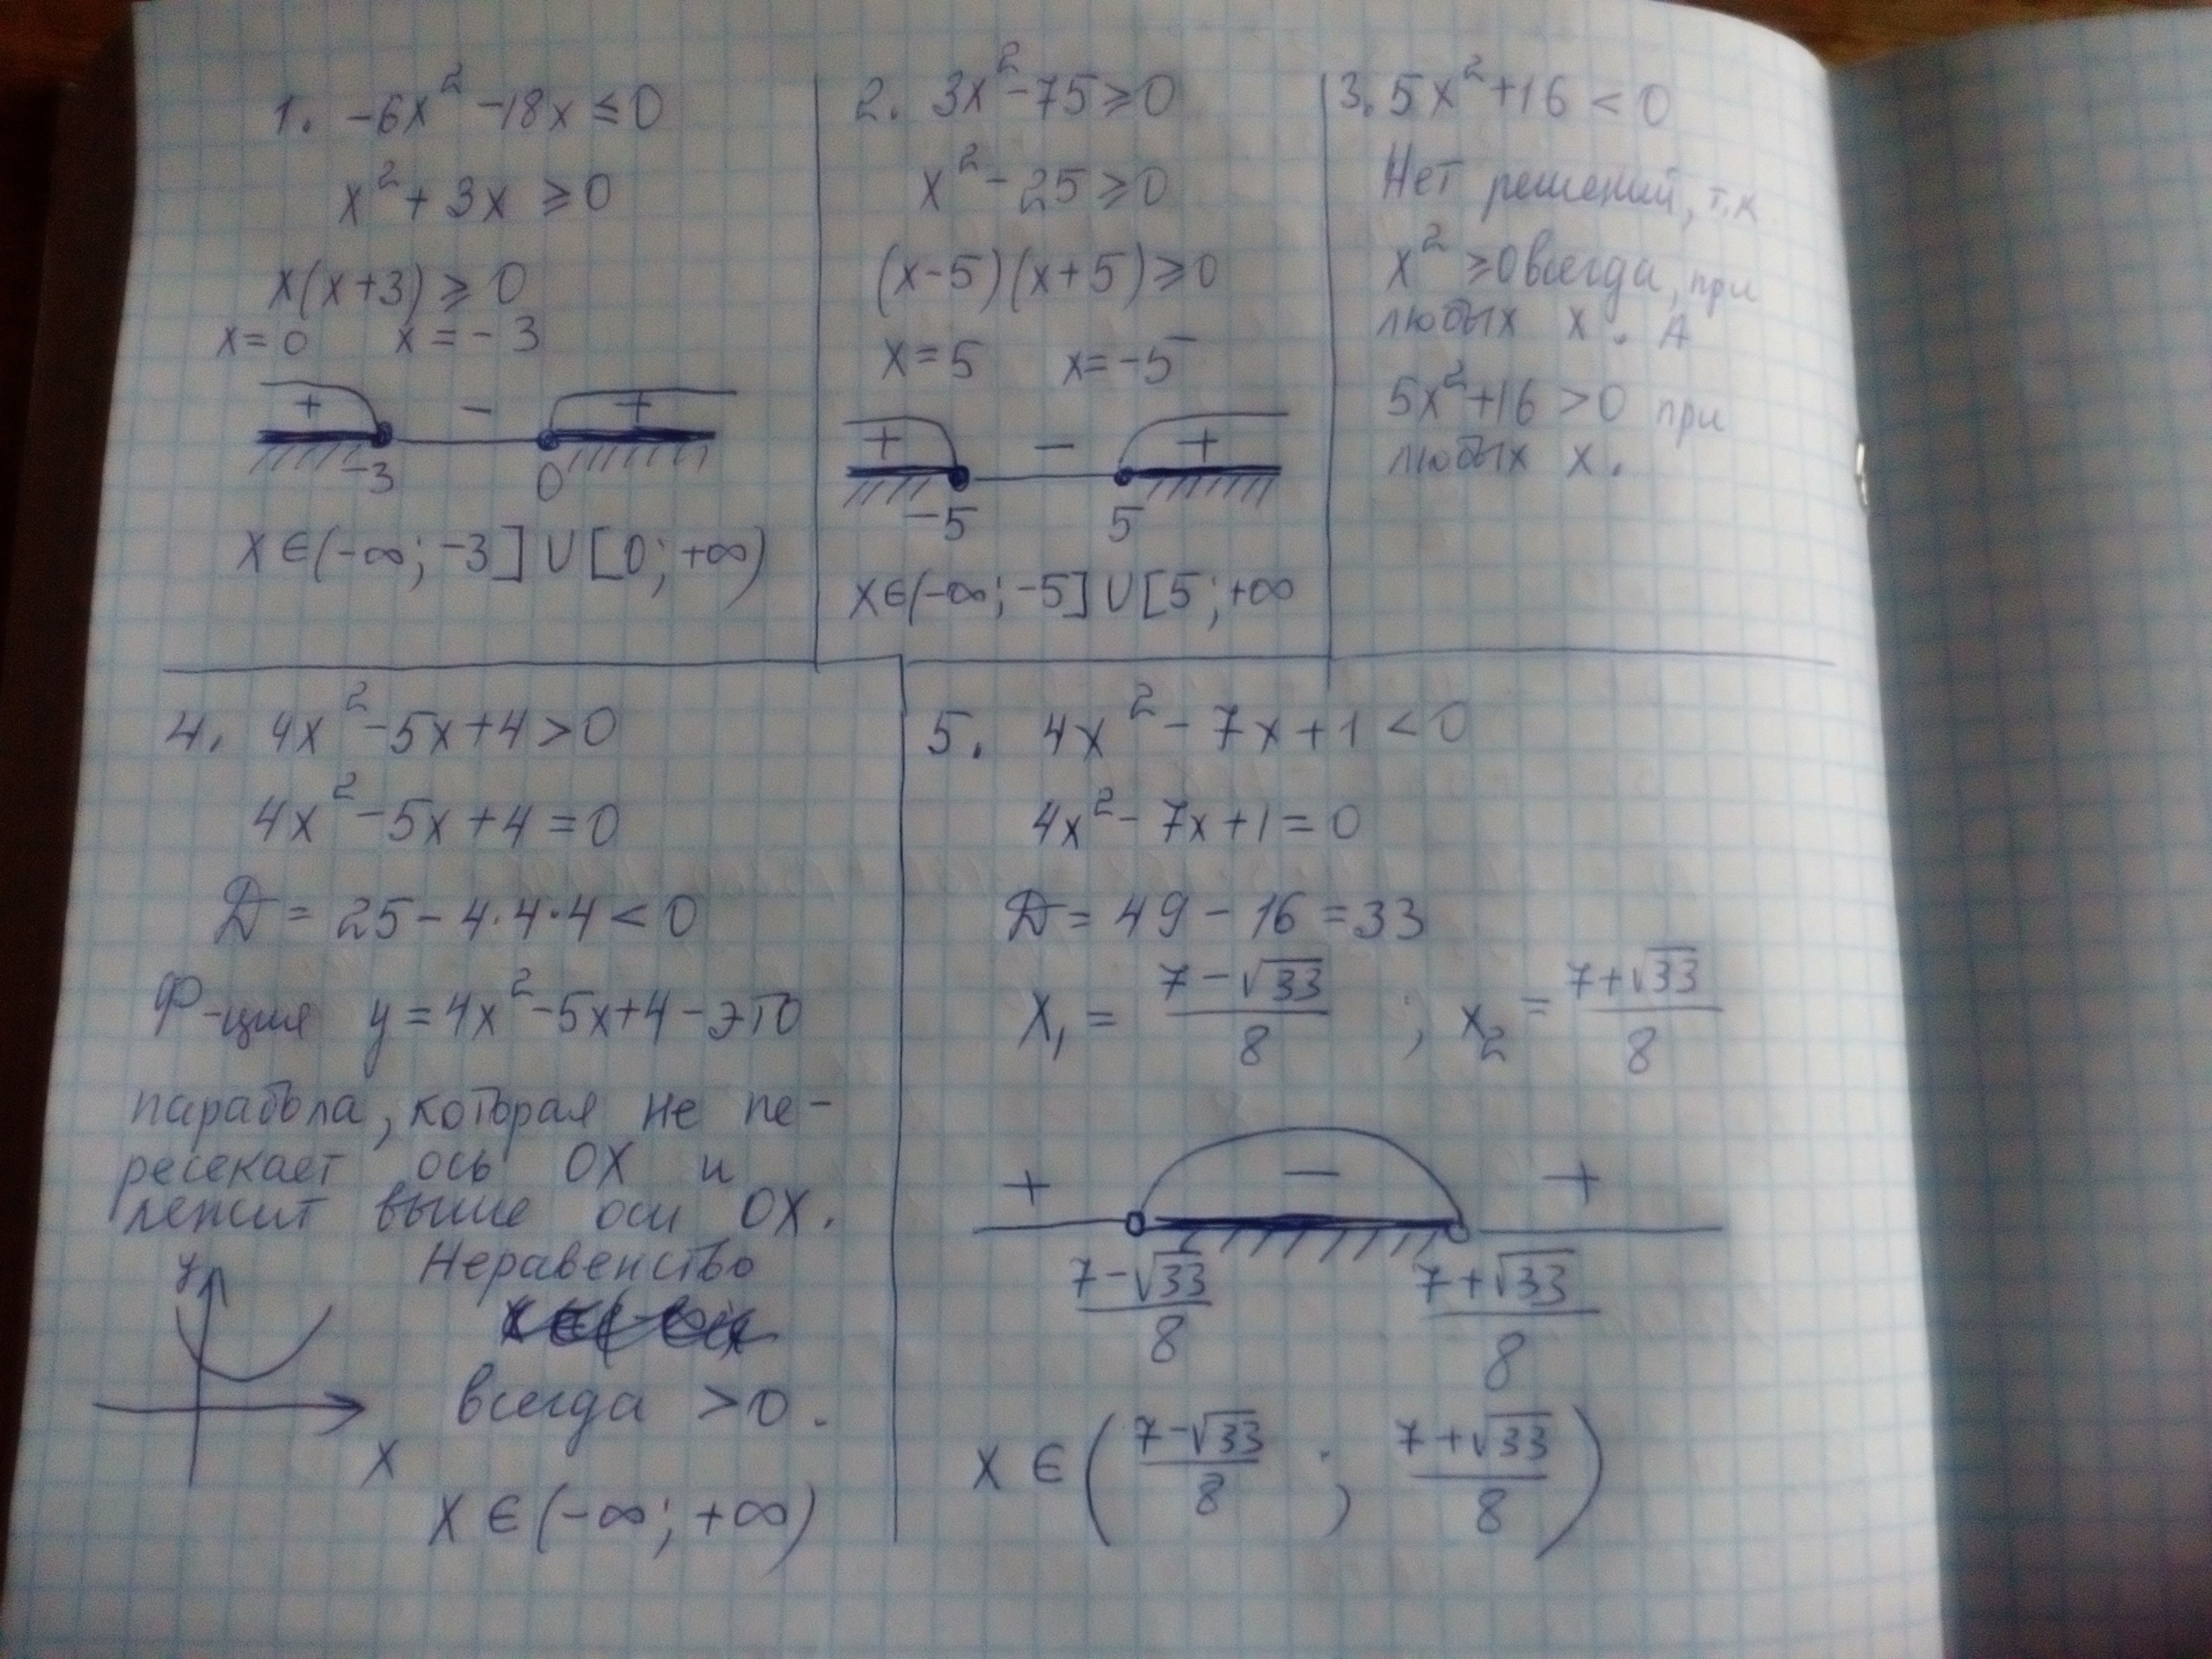 1. -6x² -18x ≤ 0
x² + 3x ≥ 0
x(x+3) ≥ 0
x=0 x=-3
+ - +
-3 0
x∈(-∞; -3]∪[0; +∞)
2. 3x² - 75 ≥ 0
x² - 25 ≥ 0
(x-5)(x+5) ≥ 0
x=5 x=-5
+ - +
-5 5
x∈(-∞; -5]∪[5; +∞
3. 5x² +16 < 0
Нет решений, т.к
x² ≥0 всегда, при
любых x. А
5x² +16 >0 при
любых x.
4. 4x² -5x+4>0
4x² -5x+4=0
Д = 25 - 4·4·4 < 0
Ф-ция y=4x²-5x+4 - это
парабола, которая не пе-
ресекает ось OX и
лежит выше оси OX.
y Неравенство
всегда >0.
x
x∈(-∞; +∞)
5. 4x² - 7x+1 < 0
4x² - 7x+1=0
Д= 49 - 16 =33
x₁ = (7-√33)/8 ; x₂ = (7+√33)/8
+ - +
(7-√33)/8 (7+√33)/8
x ∈ ((7-√33)/8 ; (7+√33)/8)